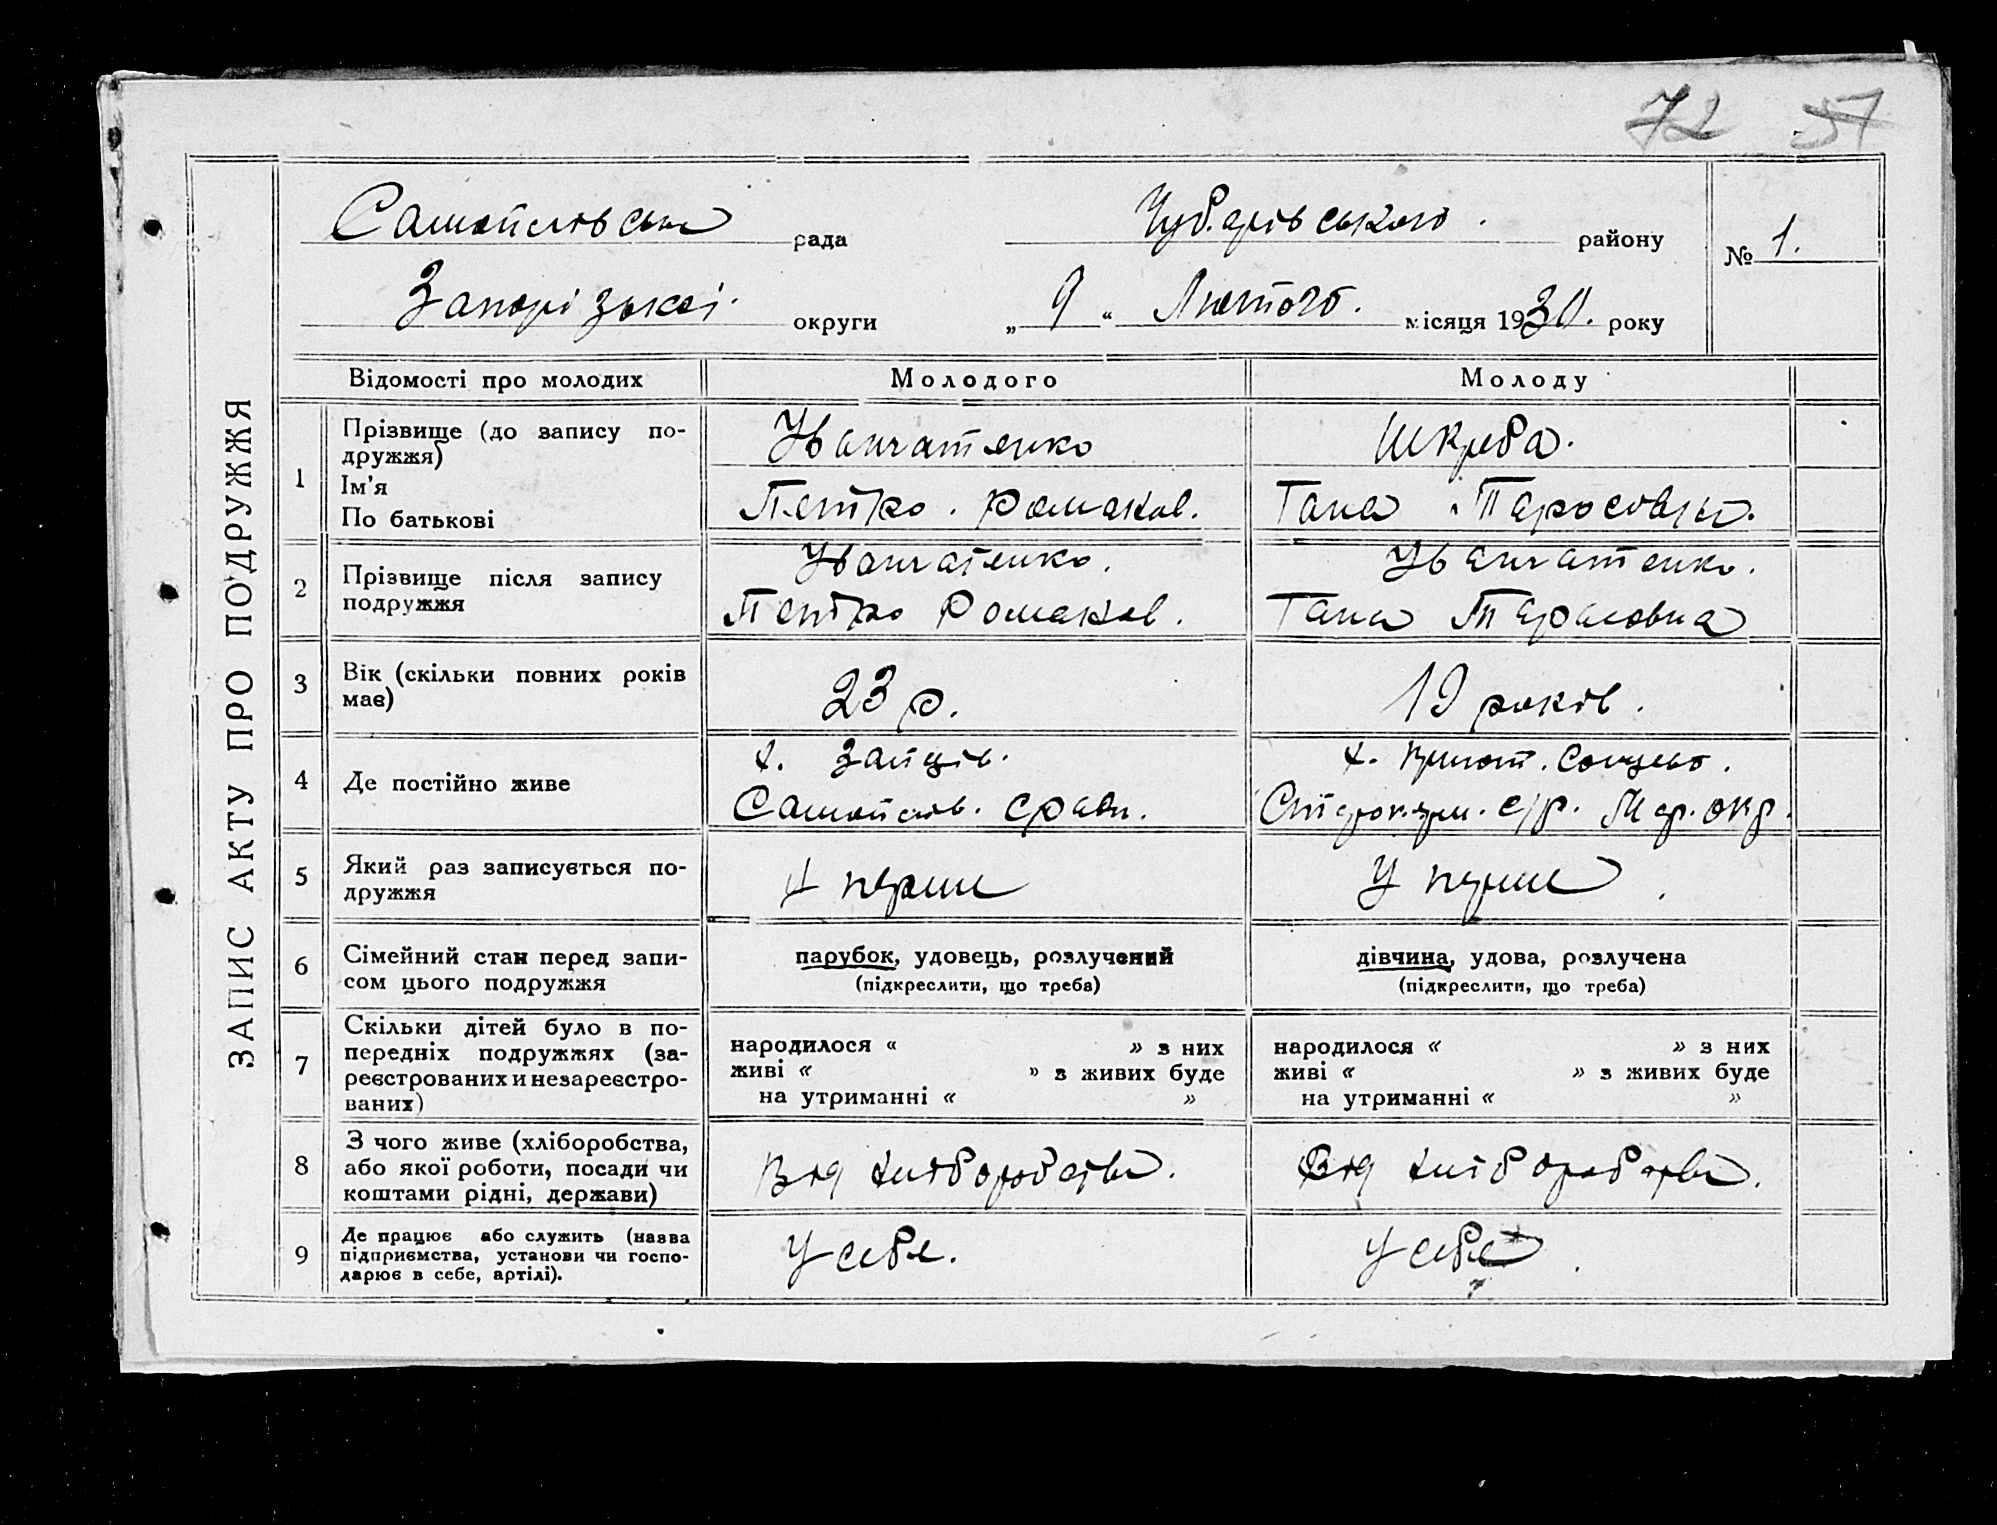 72 57
Самойлівська рада Чубарівського району № 1.
Запорізької округи „ 9 “ Лютого. місяця 1930. року
ЗАПИС АКТУ ПРО ПОДРУЖЖЯ
Відомості про молодих Молодого Молоду
1 Прізвище (до запису по-
дружжя)
Ім'я
По батькові
Іванчатенко
Петро. Романов.
Шкреба.
Гана Таросовна.
2 Прізвище після запису
подружжя
Іванчатенко.
Петро Романов.
Іванчатенко.
Гана Тарасовна
3 Вік (скільки повних років
має)
23 р.
19 років.
4 Де постійно живе
х. Зайців.
Самойлів. сради.
х. Сонцево.
с/р. Мар. окр.
5 Який раз записується по-
дружжя
У перше
У перше
6 Сімейний стан перед запи-
сом цього подружжя
парубок, удовець, розлучений
(підкреслити, що треба)
дівчина, удова, розлучена
(підкреслити, що треба)
7 Скільки дітей було в по-
передніх подружжях (за-
реєстрованих и незареєстро-
ваних)
народилося « » з них
живі « » з живих буде
на утриманні « »
народилося « » з них
живі « » з живих буде
на утриманні « »
8 З чого живе (хліборобства,
або якої роботи, посади чи
коштами рідні, держави)
Від хліборобства.
Від хліборобства.
9 Де працює або служить (назва
підприємства, установи чи госпо-
дарює в себе, артілі).
У себе.
У себе.